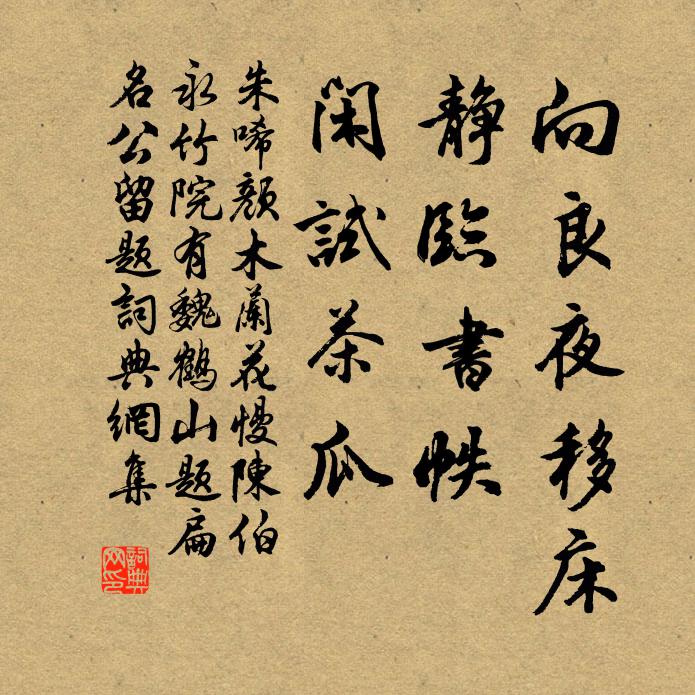 向良夜移床
静臨書帙
閑試茶瓜
朱晞顔木蘭花慢陳伯
永竹院有魏鶴山題扁
名公留題詞典網集
詞典
网印